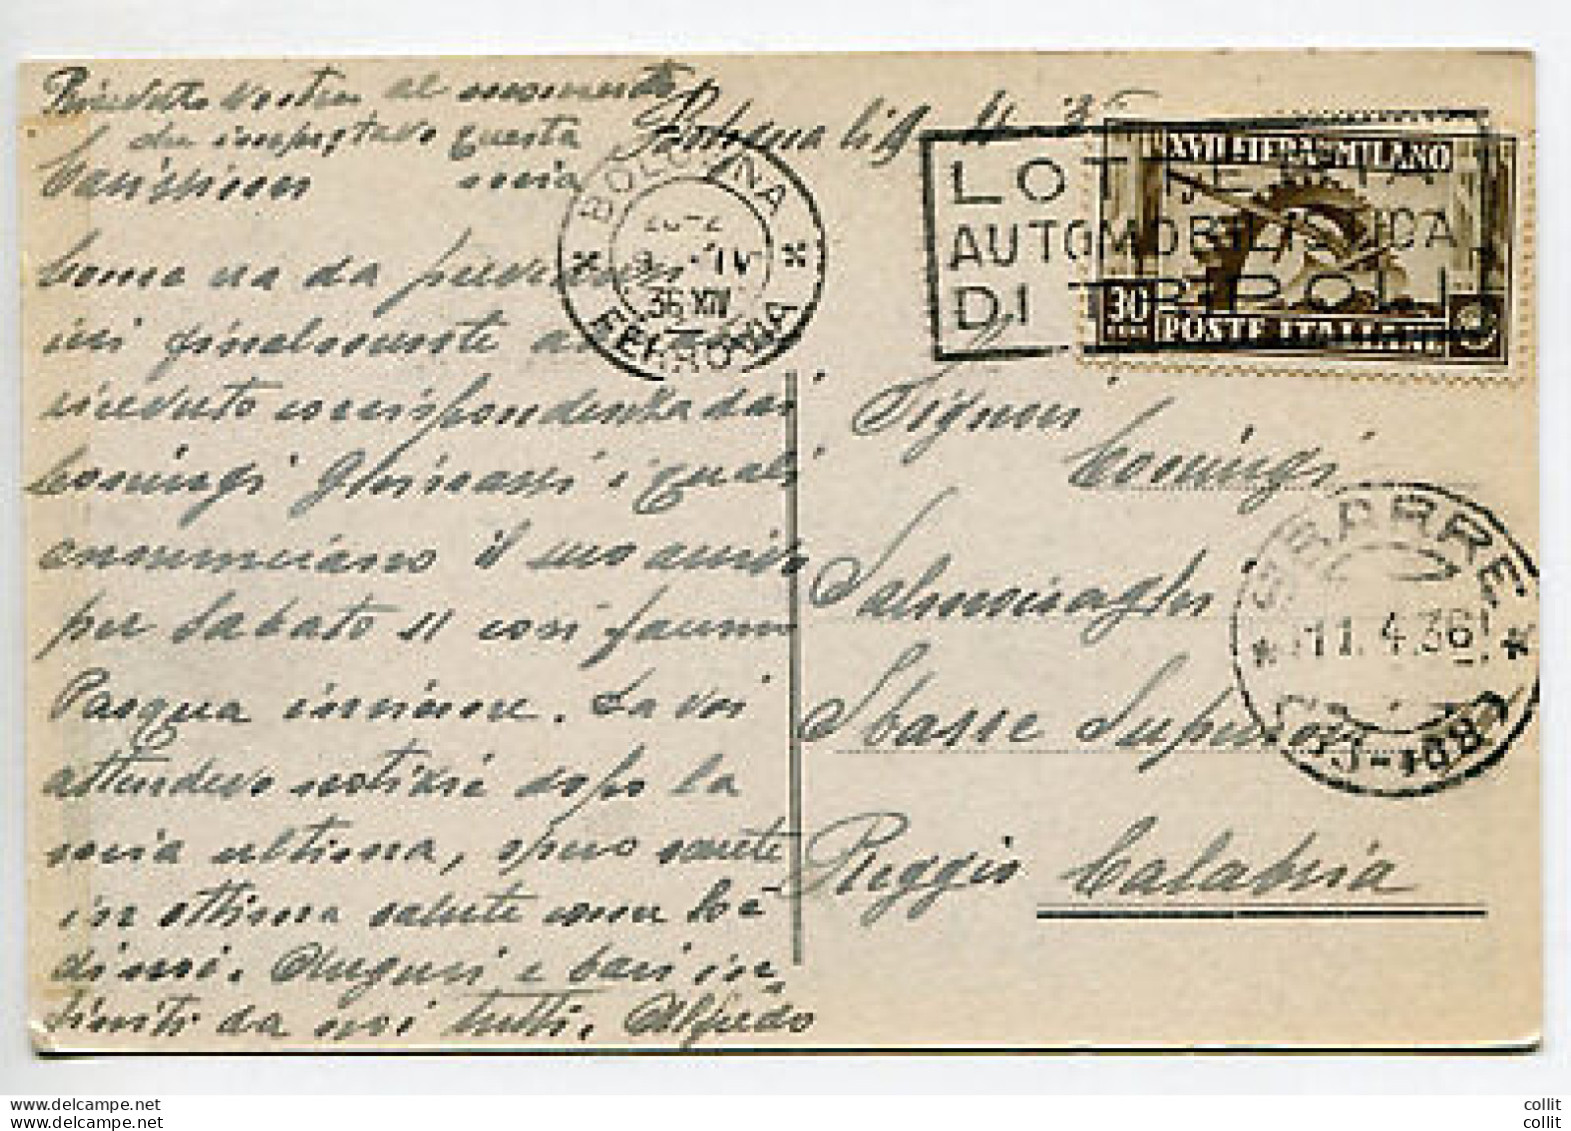 Ricevuto vostra al momento
che impostavo questa mia
Bologna li 9-4-36
Carissimi
Come va da
mi finalmente
ricevuto corrispondenza dai
Comingi Ghinassi i quali
annunciano il suo arrivo
per Sabato 11 così faremo
Pasqua insieme. Da voi
attendevo notizie dopo la
mia ultima, spero sarete
in ottima salute come
di noi. Auguri e baci in-
finiti da noi tutti. Alfredo
BOLOGNA
FERROVIA
9-IV
36 XIV
LOTTERIA
AUTOMOBILISTICA
DI TRIPOLI
XVII FIERA MILANO
30
POSTE ITALIANE
Signori
Comingi
Salmoiraghi
Sbarre Superiori
Reggio Calabria
SBARRE
11.4.36
collit
collit
collit
collit